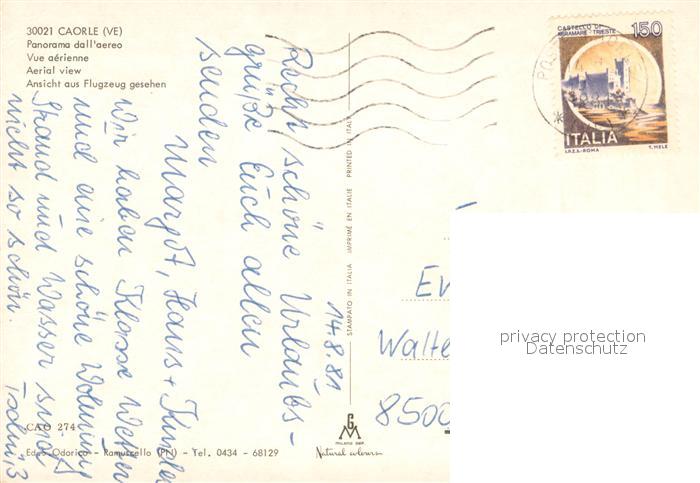 30021 CAORLE (VE)
Panorama dall'aereo
Vue aérienne
Aerial view
Ansicht aus Flugzeug gesehen
CASTELLO DI
MIRAMARE - TRIESTE
150
ITALIA
I.P.Z.S.-ROMA
T. MELE
14.8.81
Recht schöne Urlaubs-
grüße Euch allen
senden
Margot, Hans + Kinder
Wir haben Klasse Wetter
und eine schöne Wohnung
Strand und Wasser sind
nicht so schön. Tschüß
STAMPATO IN ITALIA IMPRIMÉ EN ITALIE PRINTED IN ITALY
Walte
8500
privacy protection
Datenschutz
CAO 274
Ed. S. Odorico - Ramuscello (PN) - Tel. 0434 - 68129
MILANO DEP.
Natural colours